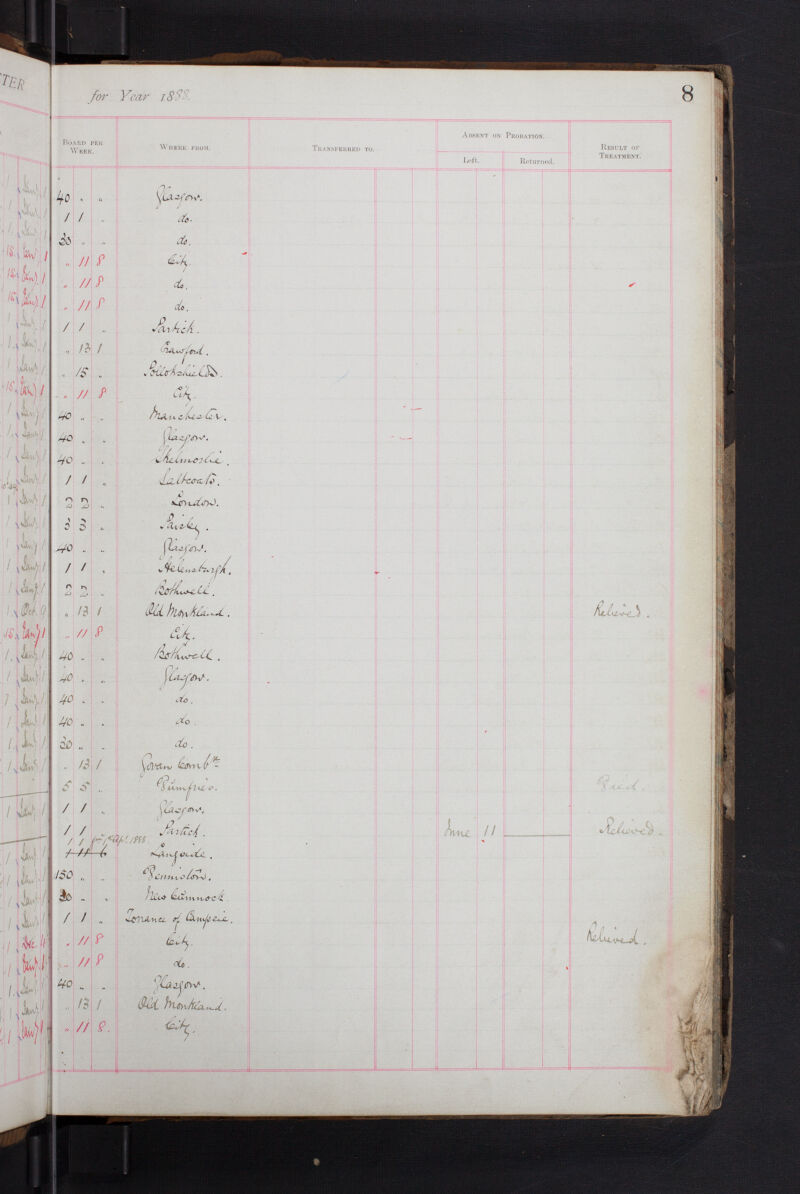 TER
for Year 1888.
8
BOARD PER WEEK. WHERE FROM. TRANSFERRED TO. ABSENT ON PROBATION. RESULT OF TREATMENT.
Left. Returned.
40 „ „ Glasgow.
1 1 „ do.
30 „ „ do.
„ 11 8 City
„ 11 8 do.
„ 11 8 do.
1 1 „ Partick.
„ 13 1 Crawford.
„ 15 „ Pollokshields.
„ 11 8 City.
40 „ „ Manchester.
40 „ „ Glasgow.
40 „ „ Skelmorlie.
1 1 „ Saltcoats.
2 2 „ London.
3 3 „ Paisley.
40 „ „ Glasgow.
1 1 „ Helensburgh.
2 2 „ Bothwell.
„ 13 1 Old Monkland. Relieved.
„ 11 8 City.
40 „ „ Bothwell.
40 „ „ Glasgow.
40 „ „ do.
40 „ „ do.
30 „ „ do.
„ 13 1 Govan Combn
5 5 „ Dumfries. Died.
1 1 „ Glasgow.
1 1 „ Partick. June 11 Relieved.
1 1 Apl. 1888
1 11 6 Langside.
150 „ „ Dennistoun.
30 „ „ New Cumnock
1 1 „ Torrance of Campsie.
„ 11 8 City. Relieved.
„ 11 8 do.
40 „ „ Glasgow.
„ 13 1 Old Monkland.
„ 11 8. City.